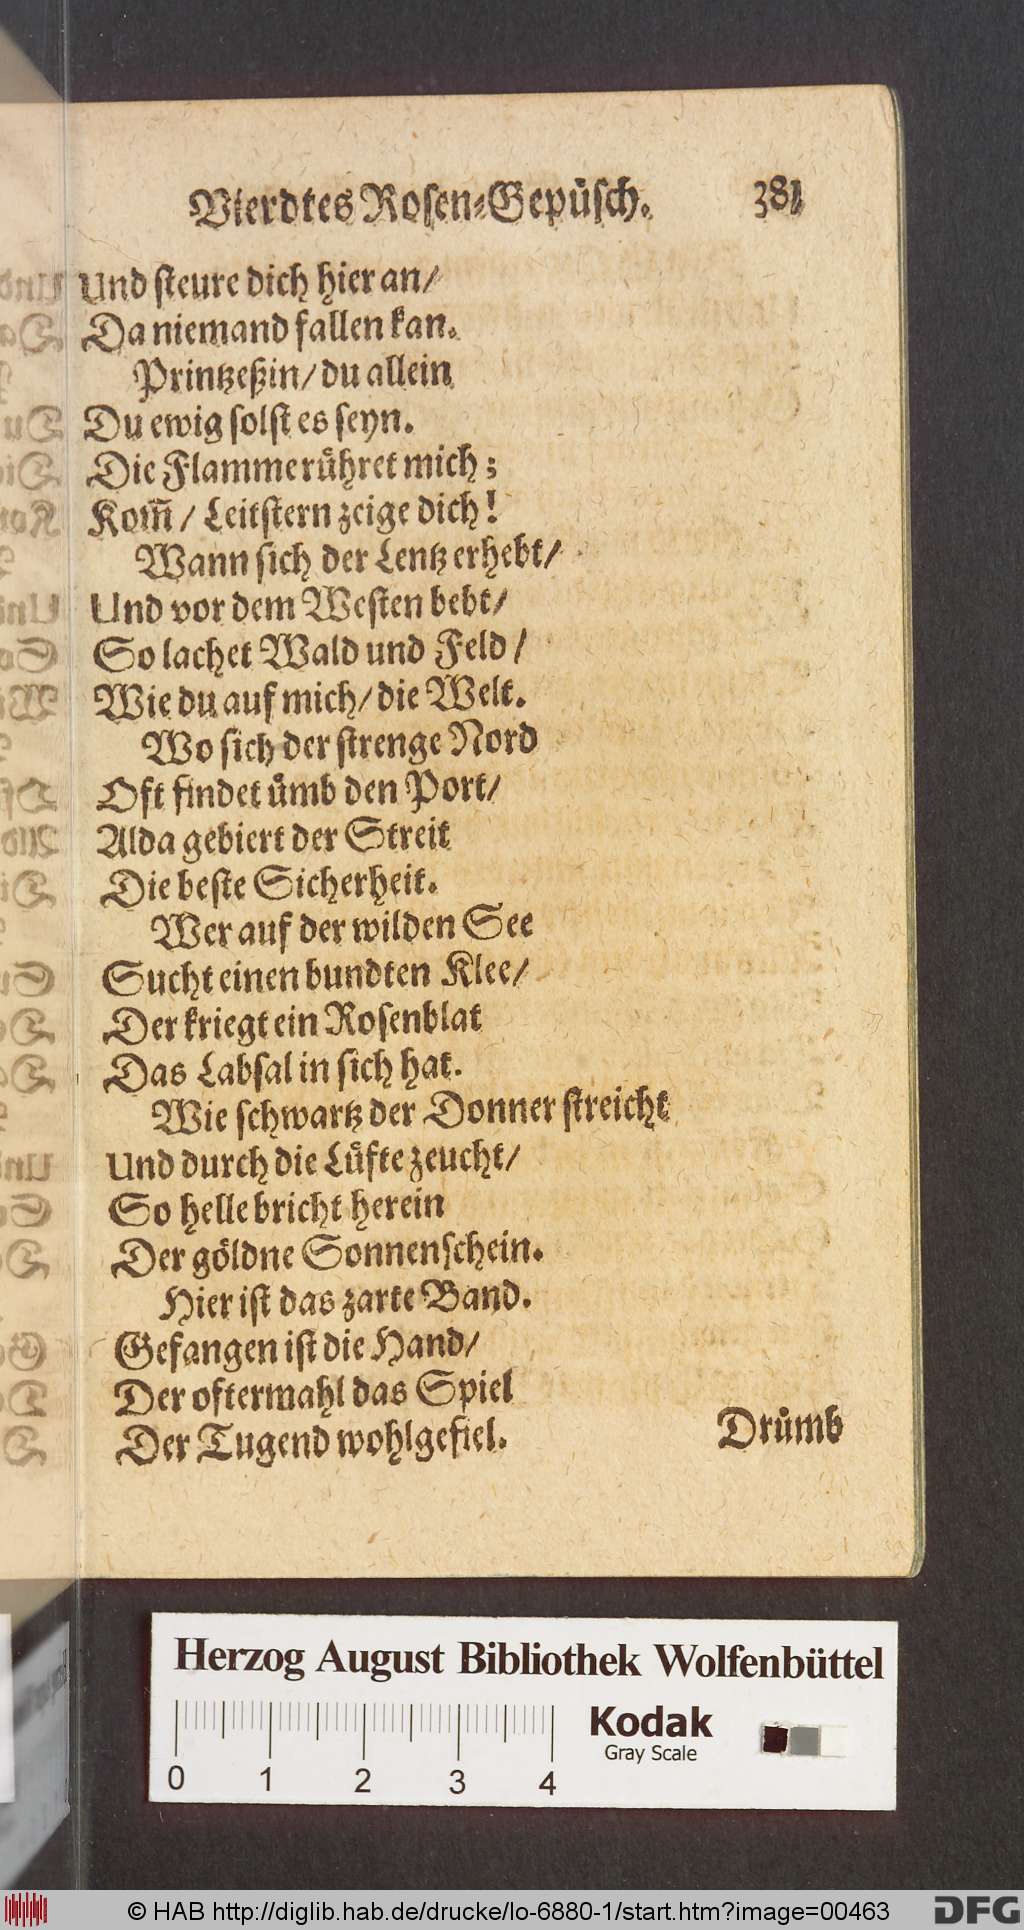 Vierdtes Rosen-Gepüsch. 381
Und steure dich hier an/
Da niemand fallen kan.
Printzeßin/ du allein
Du ewig solst es seyn.
Die Flamme rühret mich;
Kom̃/ Leitstern zeige dich!
Wann sich der Lentz erhebt/
Und vor dem Westen bebt/
So lachet Wald und Feld/
Wie du auf mich/ die Welt.
Wo sich der strenge Nord
Oft findet ümb den Port/
Alda gebiert der Streit
Die beste Sicherheit.
Wer auf der wilden See
Sucht einen bundten Klee/
Der kriegt ein Rosenblat
Das Labsal in sich hat.
Wie schwartz der Donner streicht
Und durch die Lüfte zeucht/
So helle bricht herein
Der göldne Sonnenschein.
Hier ist das zarte Band.
Gefangen ist die Hand/
Der oftermahl das Spiel
Der Tugend wohlgefiel.
Drümb
Herzog August Bibliothek Wolfenbüttel
0 1 2 3 4
Kodak
Gray Scale
© HAB http://diglib.hab.de/drucke/lo-6880-1/start.htm?image=00463
DFG